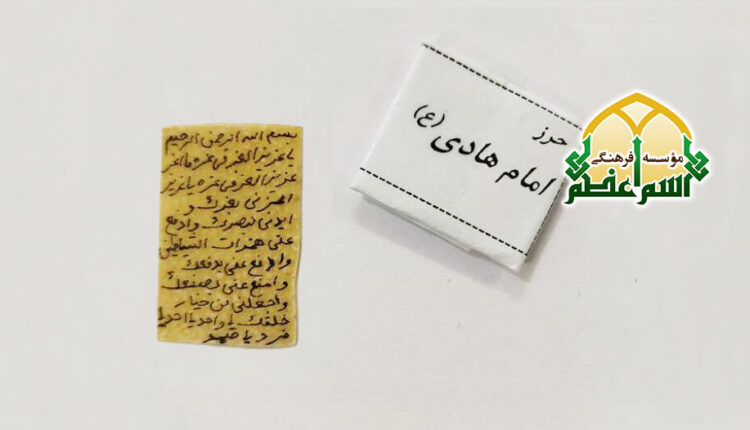 بسم الله الرحمن الرحیم
یا عزیز العز فی عزه ما اعز
عزیز العز فی عزه یا عزیز
اعزنی بعزک و
ایدنی بنصرک وادفع
عنی همزات الشیاطین
وادفع عنی بدفعک
وامنع عنی بصنعک
واجعلنی من خیار
خلقک یا واحد یا احد یا
فرد یا صمد
حرز
امام هادی (ع)
مؤسسه فرهنگی
اسم اعظم